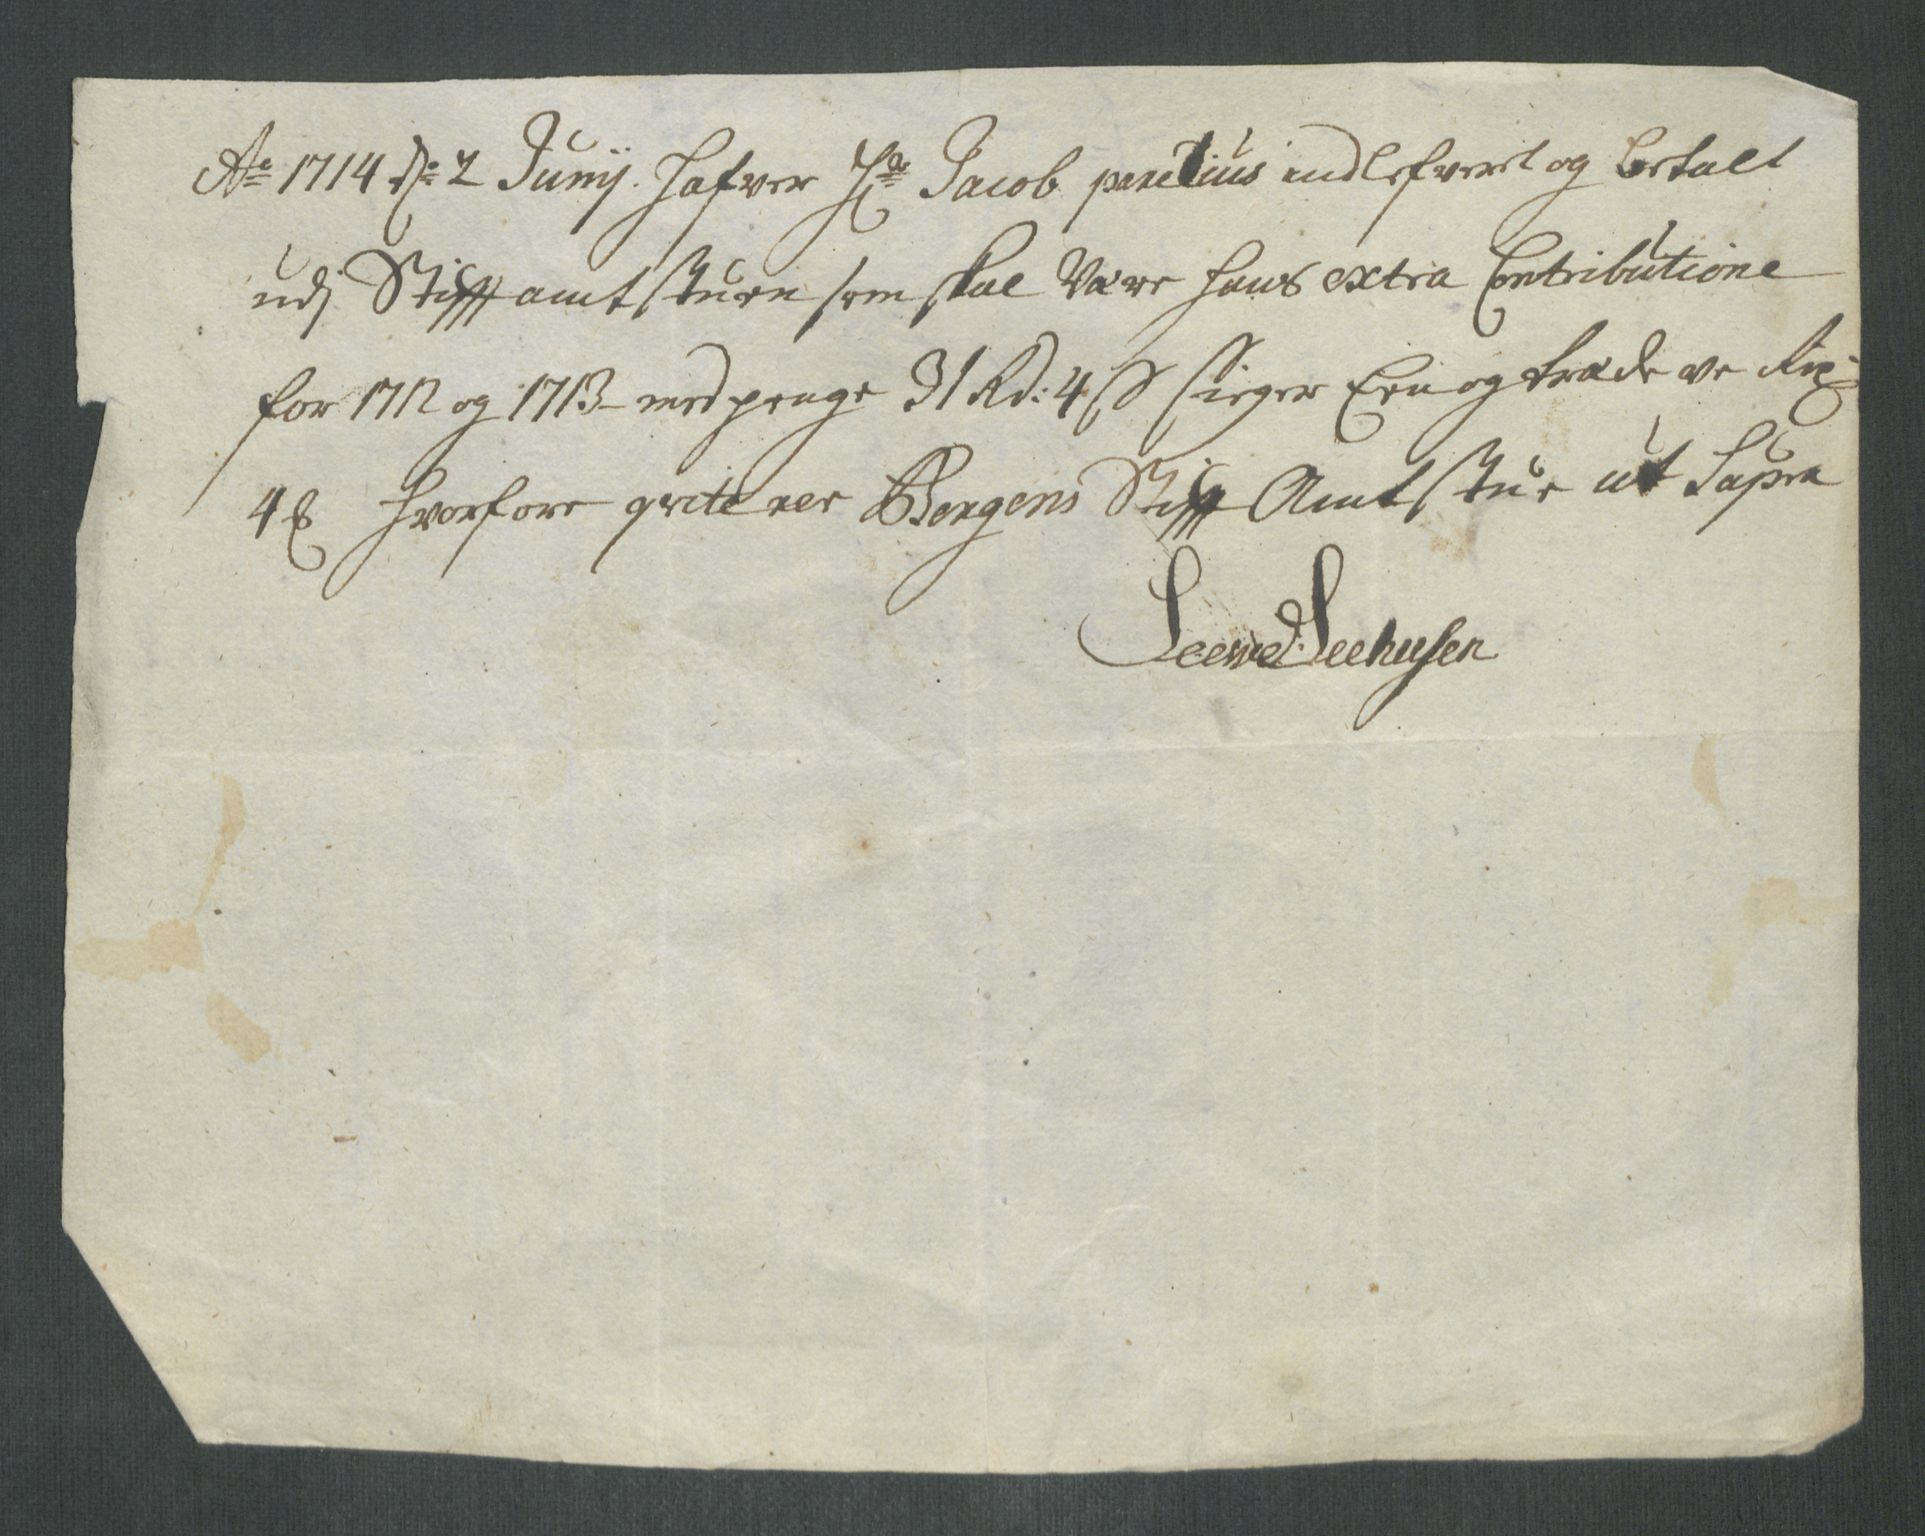 Ao 1714 d: 2 Junij. Hafver Hr Jacob paretius indlefveret og betalt
udj Stifft amt stuen som skal være hans extra Contributione
for 1712 og 1713 med penge 31 Rd: 4 ß siger Een og tredeve Rix:
4 ß hvorfore qviterer Bergens Stifft Amt stue ut Supra
Seehusen